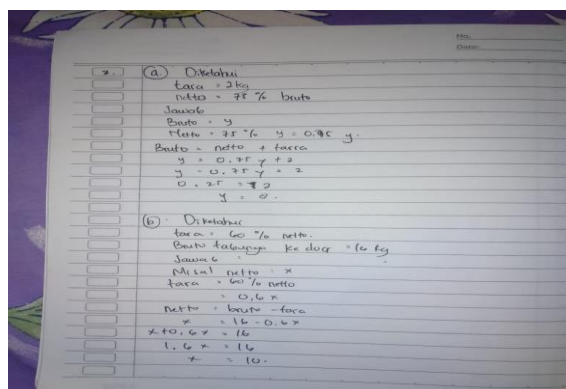 No.
Date:
7. (a) Diketahui
tara = 2 kg
netto = 75 % bruto
Jawab
Bruto = y
Netto = 75 % y = 0.75 y.
Bruto = netto + tarra
y = 0.75 y + 2
y - 0.75 y = 2
0.25 = 2
y = 8.
(b) Diketahui
tara = 60 % netto.
Bruto tabungnya ke dua = 16 kg
Jawab :
Misal netto = x
tara = 60 % netto
= 0,6 x
netto = bruto - tara
x = 16 - 0.6 x
x + 0,6 x = 16
1.6 x = 16
x = 10.